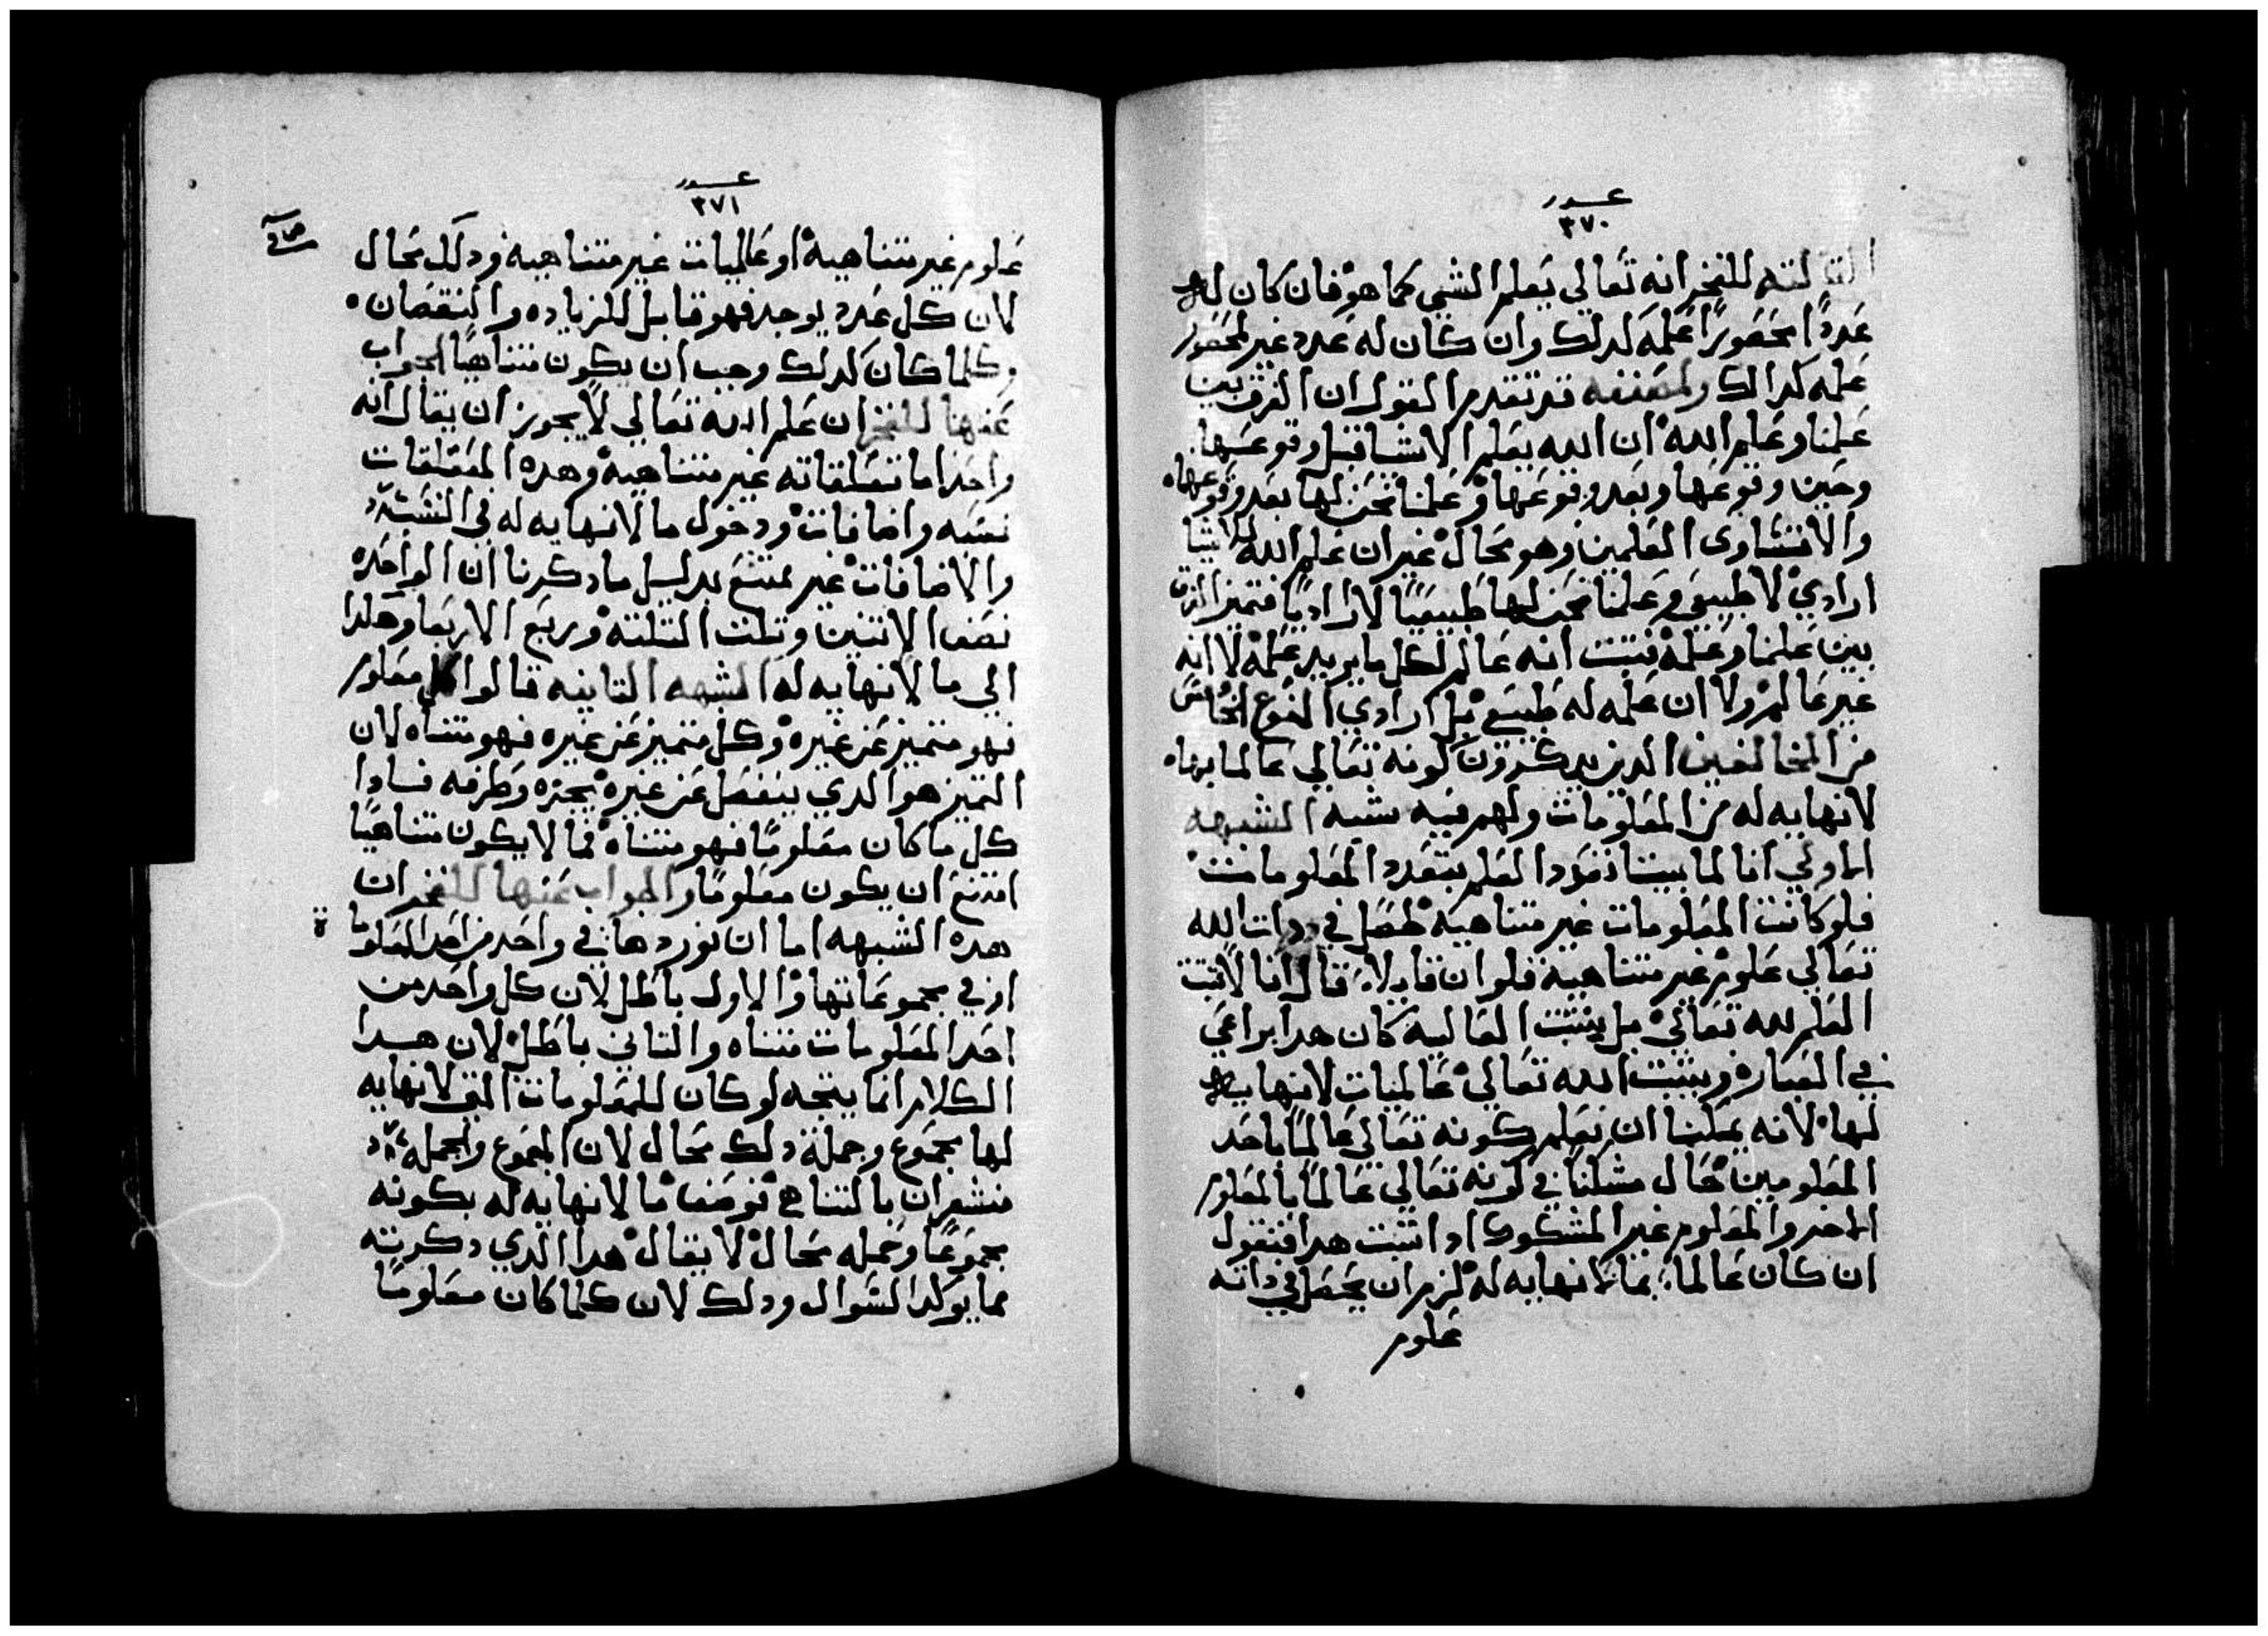 عدد
٣٧٠
الثالثه للفخر انه تعالي يعلم الشي كما هو فان كان له
عددًا محصورًا علمه لدلك وان كان له عدد غير محصور
علمه كدالك ولمصنفه قد تقدم القول ان الفرق بين
علمنا وعلم الله ان الله يعلم الاشيا قبل وقوعها
وحين وقوعها وبعد وقوعها وعلمنا نحن لها بعد وقوعها
والا تساوى العلمين وهو محال غير ان علم الله للاشيا
ارادي لا طبيعي وعلمنا نحن لها طبيعيًا لا اراديًا فتميز الفرق
بين علمنا وعلمه فتبت انه عالم لكل ما يريد علمه لا انه
غير عالم ولا ان علمه له طبيع بل ارادي النوع الخامس
من المخالفين الدين ينكرون كونه تعالي عالما بما
لانهايه له من المعلومات ولهم فيه شبه الشبهه
الاولي انا لما بيننا تعدد العلم بتعدد المعلومات
فلو كانت المعلومات غير متناهيه لحصل في دات الله
تعالي علوم غير متناهيه فلو ان قايلا قال انا لا اثبت
العلم لله تعالي بل يثبت العالميه كان هدا براعي
في العباره ويثبت الله تعالي عالميات لانهايه
لها لانه يمكننا ان نعلم كونه تعالي عالمًا باحد
المعلومين حال مشكنا في كونه تعالي عالمًا بالمعلوم
الاخر والمعلوم غير المشكوك ادا تبت هدا فنقول
ان كان عالما بما لانهايه له لزم ان يحصل في داته
علوم
عدد
٣٧١
علوم غير متناهيه او عالميات غير متناهيه ودلك محال
لان كل عدد يوجد فهو قابل للزياده والنقصان
وكلما كان كدلك وجب ان يكون متناهيًا الجواب
عنها للفخر ان علم الله تعالي لا يجوز ان يقال انه
واحد اما تعلقاته غير متناهيه وهده المتعلقات
نسبه واضافات ودخول ما لانهايه له في النسب
والاضافات غير ممتنع بدليل ما دكرنا ان الواحده
نصف الاتنين وتلت التلته وربع الاربعا وهلدا
الي ما لانهايه له الشبهه التانيه قالوا كل معلوم
فهو متميز عن غيره وكل متميز عن غيره فهو متناه لان
التميز هو الدي ينفصل عن غيره بحده وطرفه فادا
كل ما كان معلومًا فهو متناه فما لا يكون متناهيًا
امتنع ان يكون معلومًا والجواب عنها للفخر ان
هده الشبهه اما ان نوردها في واحد من احد المعلوما
او في مجموعاتها والاول باطل لان كل واحد من
احد المعلومات متناه والتاني باطل لان هدا
الكلام انما يتجه لو كان للمعلومات التي لانهايه
لها مجموع وجملة دلك محال لان المجموع والجمله
مشعران بالتناهي فوصف ما لانهايه له بكونه
مجموعًا وجمله محال لا يقال هدا الدي دكرته
مما يوكد السوال ودلك لان كلما كان معلومًا